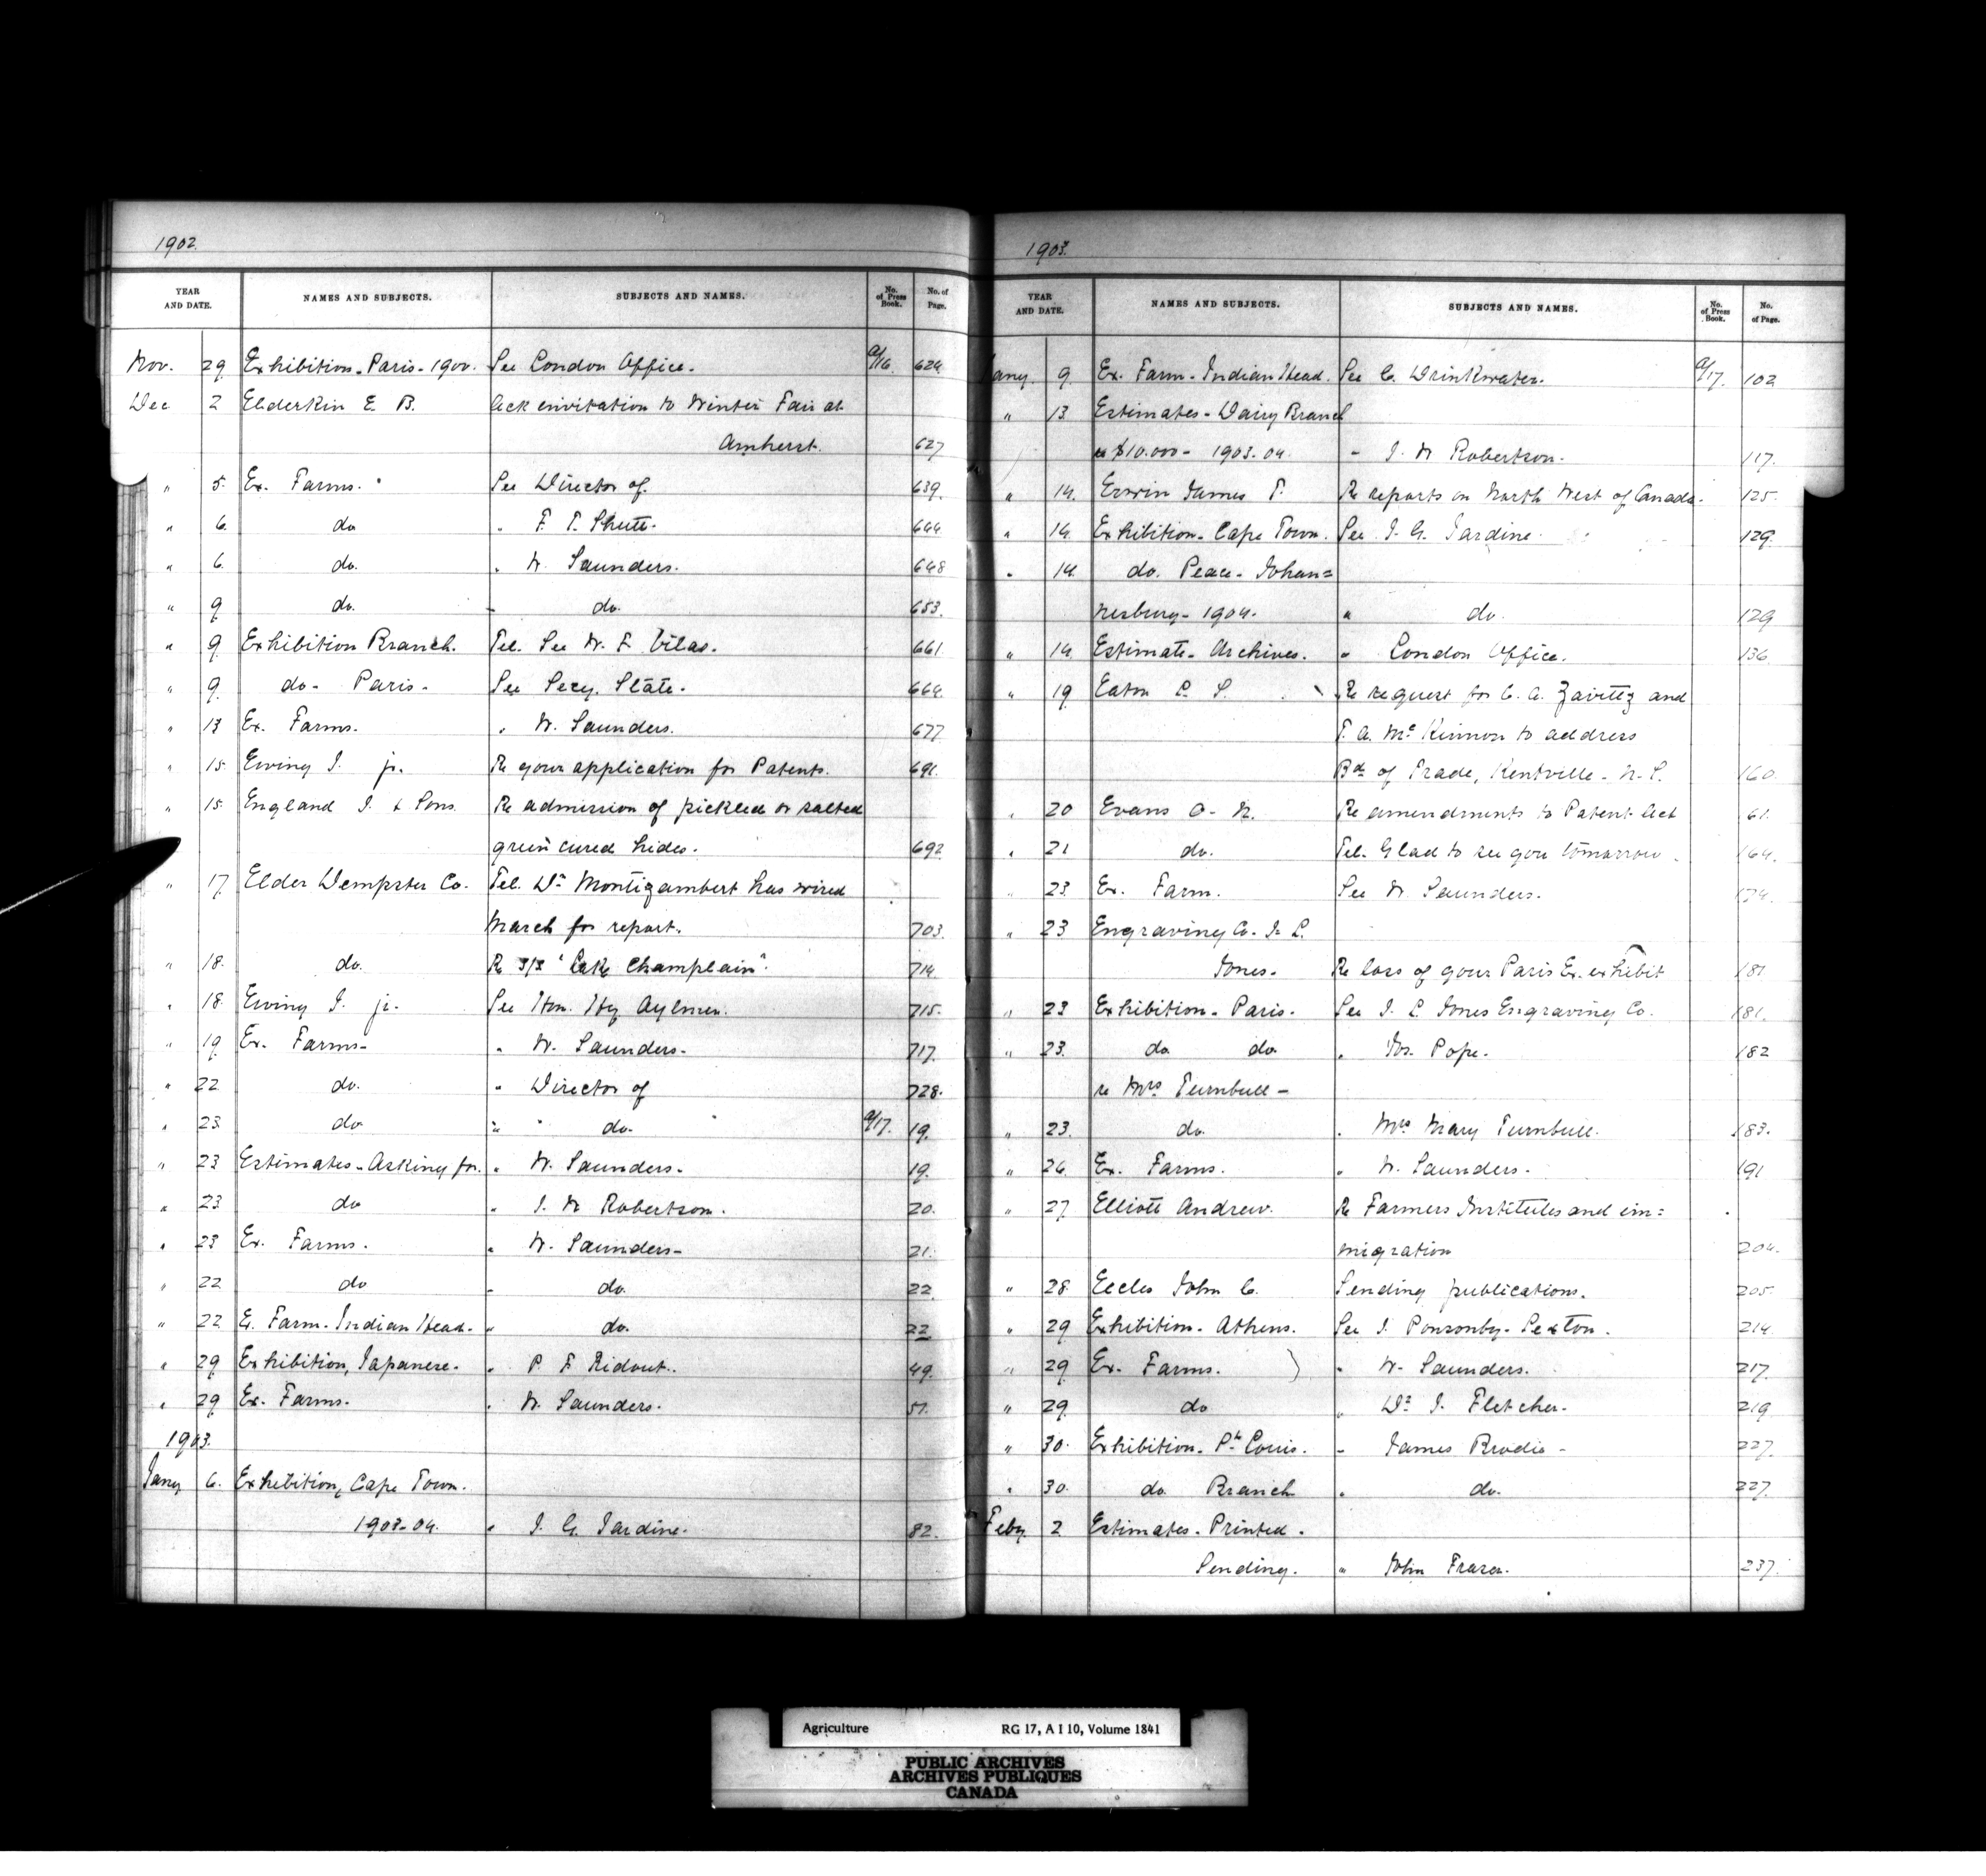 1902.
YEAR AND DATE. NAMES AND SUBJECTS. SUBJECTS AND NAMES. No. of Press Book. No. of Page.
Nov. 29 Exhibition - Paris - 1900. See London Office. 9/16. 624.
Dec 2 Elderkin E. B. Ack invitation to Winter Fair at
Amherst. 627
" 5. Ex. Farms. See Director of. 639.
" 6. do " F. T. Shutt. 644.
" 6. do. " W. Saunders. 648
" 9. do. " do. 653.
" 9. Exhibition Branch. Tel. See W. F. Vilas. 661.
" 9. do - Paris - See Secy. State. 664.
" 13 Ex. Farms. " W. Saunders. 677
" 15. Ewing J. jr. Re your application for Patents. 691.
" 15. England J. & Sons. Re admission of pickled or salted
green cured hides. 692
" 17 Elder Dempster Co. Tel. Dr Montizambert has wired
March for report. 703.
" 18. do. Re S/S "Lake Champlain". 714.
" 18. Ewing J. jr. See Hon. Hy Aylmer. 715.
" 19. Ex. Farms - " W. Saunders. 717.
" 22 do. " Director of 728.
" 23. do " " do. 9/17. 19.
" 23 Estimates - Asking for. " W. Saunders. 19.
" 23 do " J. W. Robertson. 20.
" 23 Ex. Farms. " W. Saunders - 21.
" 22 do " do. 22.
" 22 E. Farm - Indian Head. " do. 22
" 29 Exhibition, Japanese. " P. F. Ridout. 49.
" 29 Ex. Farms. " W. Saunders. 51.
1903.
Jany 6. Exhibition, Cape Town.
1903-04. " J. G. Jardine. 82.
1903.
YEAR AND DATE. NAMES AND SUBJECTS. SUBJECTS AND NAMES. No. of Press Book. No. of Page.
Jany. 9. Ex. Farm - Indian Head. See C. Drinkwater. 9/17. 102
" 13 Estimates - Dairy Branch
$10.000 - 1903.04. " J. W. Robertson. 117.
" 14. Erwin James T. Re reports on North West of Canada. 125.
" 14. Exhibition - Cape Town. See J. G. Jardine. 129.
" 14. do. Peace - Johan=
nesburg - 1904. " do. 129
" 14. Estimate - Archives. " London Office. 136
" 19 Eaton P. S. Re request for C. A. Zavitz and
T. A. Mc Kinnon to address
Bd of Trade, Kentville - N. S. 160.
" 20 Evans O - N. Re amendments to Patent Act 61.
" 21 do. Tel. Glad to see you tomorrow. 164.
" 23 Ex. Farm. See W. Saunders. 174.
" 23 Engraving Co. J. L.
Jones. Re loss of your Paris Ex. exhibit 181
" 23 Exhibition - Paris. See J. L. Jones Engraving Co. 181.
" 23. do do " Jos. Pope. 182
re Mrs Turnbull -
" 23. do. " Mrs Mary Turnbull. 183.
" 26. Ex. Farms. " W. Saunders. 191
" 27. Elliott Andrew. Re Farmers Institutes and im=
migration 204.
" 28. Eccles John C. Sending publications. 205.
" 29 Exhibition - Athens. See J. Ponsonby - Sexton. 214
" 29 Ex. Farms. " W. Saunders. 217.
" 29. do " Dr J. Fletcher. 219
" 30. Exhibition - St. Louis. " James Brodie - 227.
" 30. do Branch " do. 227.
Feby 2. Estimates - Printed.
Sending. " John Fraser. 237.
Agriculture RG 17, A I 10, Volume 1841
PUBLIC ARCHIVES
ARCHIVES PUBLIQUES
CANADA